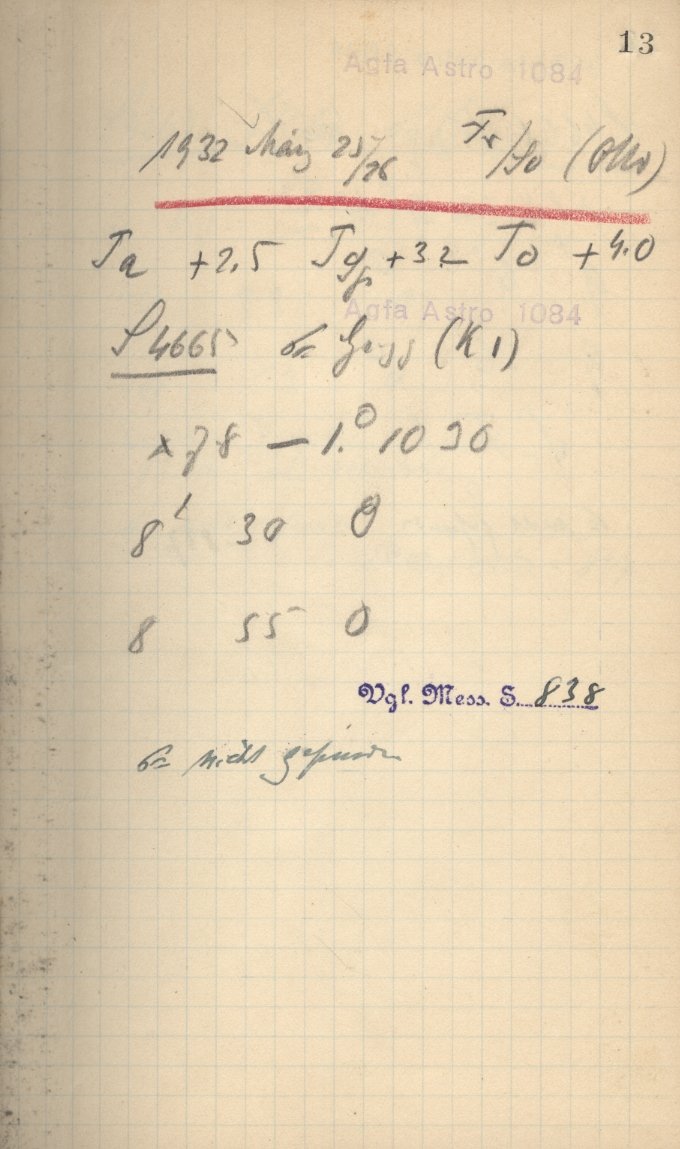 13
Agfa Astro 1084
1932 März 25/26 Fr/So (Otto)
Ta +2.5 Tg +3.2 To +4.0
Agfa Astro 1084
S 4665 (K 1)
78 — 1.0 10 30
8' 30 0
8 55 0
Vgl. Mess. S. 838
nicht gefunden